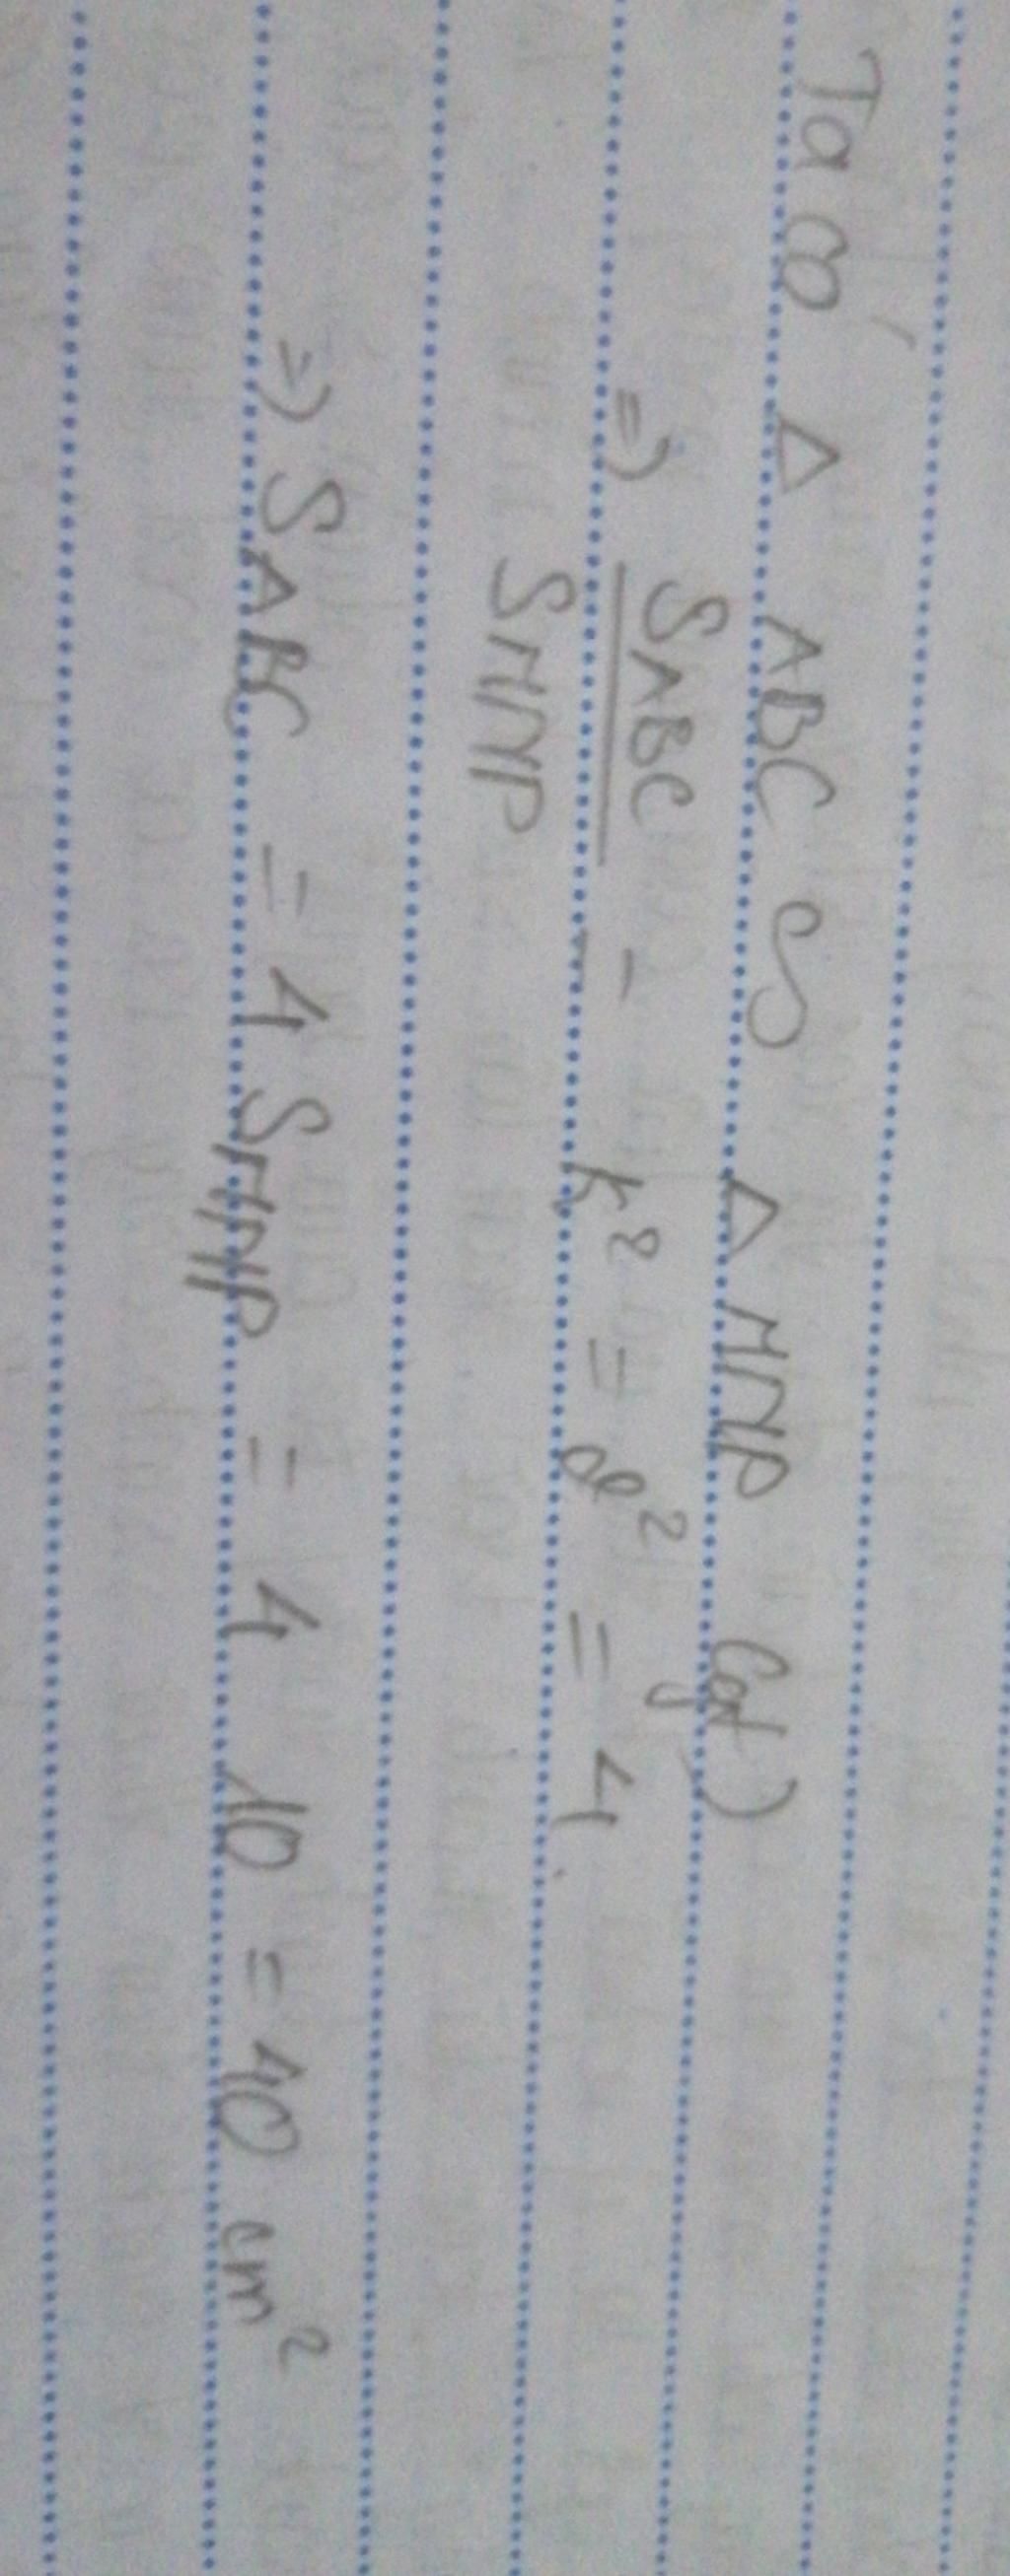 Ta có Δ ABC ∽ Δ MNP (gt)
=> S ABC / S MNP = k² = 2² = 4
=> S ABC = 4 S MNP = 4 10 = 40 cm²